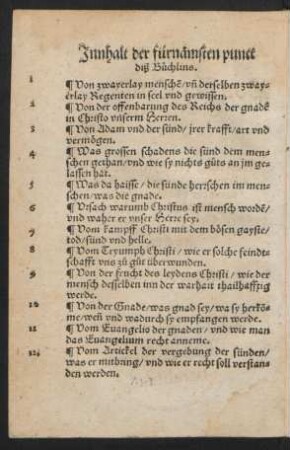 Innhalt der fürnämsten punct
diß Büchlins.
1 ¶ Von zwayerlay menschẽ / vñ derselben zway-
erlay Regenten in seel vnd gewissen.
2 ¶ Von der offenbarung des Reichs der gnadẽ
in Christo vnserm Herren.
3 ¶ Von Adam vnd der sünd / jrer krafft / art vnd
vermögen.
4 ¶ Was grossen schadens die sünd dem men-
schen gethan / vnd wie sy nichts gůts an jm ge-
lassen hat.
5 ¶ Was da haisse / die sünde herrschen im men-
schen / was die gnade.
6 ¶ Vrsach warumb Christus ist mensch wordẽ /
vnd waher er vnser Herre sey.
7 ¶ Vom kampff Christi mit dem bösen gayste /
tod / sünd vnd helle.
8 ¶ Vom Tryumph Christi / wie er solche feindt-
schafft vns zů gůt überwunden.
9 ¶ Von der frucht des leydens Christi / wie der
mensch desselben inn der warhait thailhafftig
werde.
10 ¶ Von der Gnade / was gnad sey / wa sy herkõ-
me / weñ vnd wadurch sy empfangen werde.
11 ¶ Vom Euangelio der gnaden / vnd wie man
das Euangelium recht anneme.
12 ¶ Vom Artickel der vergebung der sünden /
was er mitbring / vnd wie er recht soll verstan-
den werden.